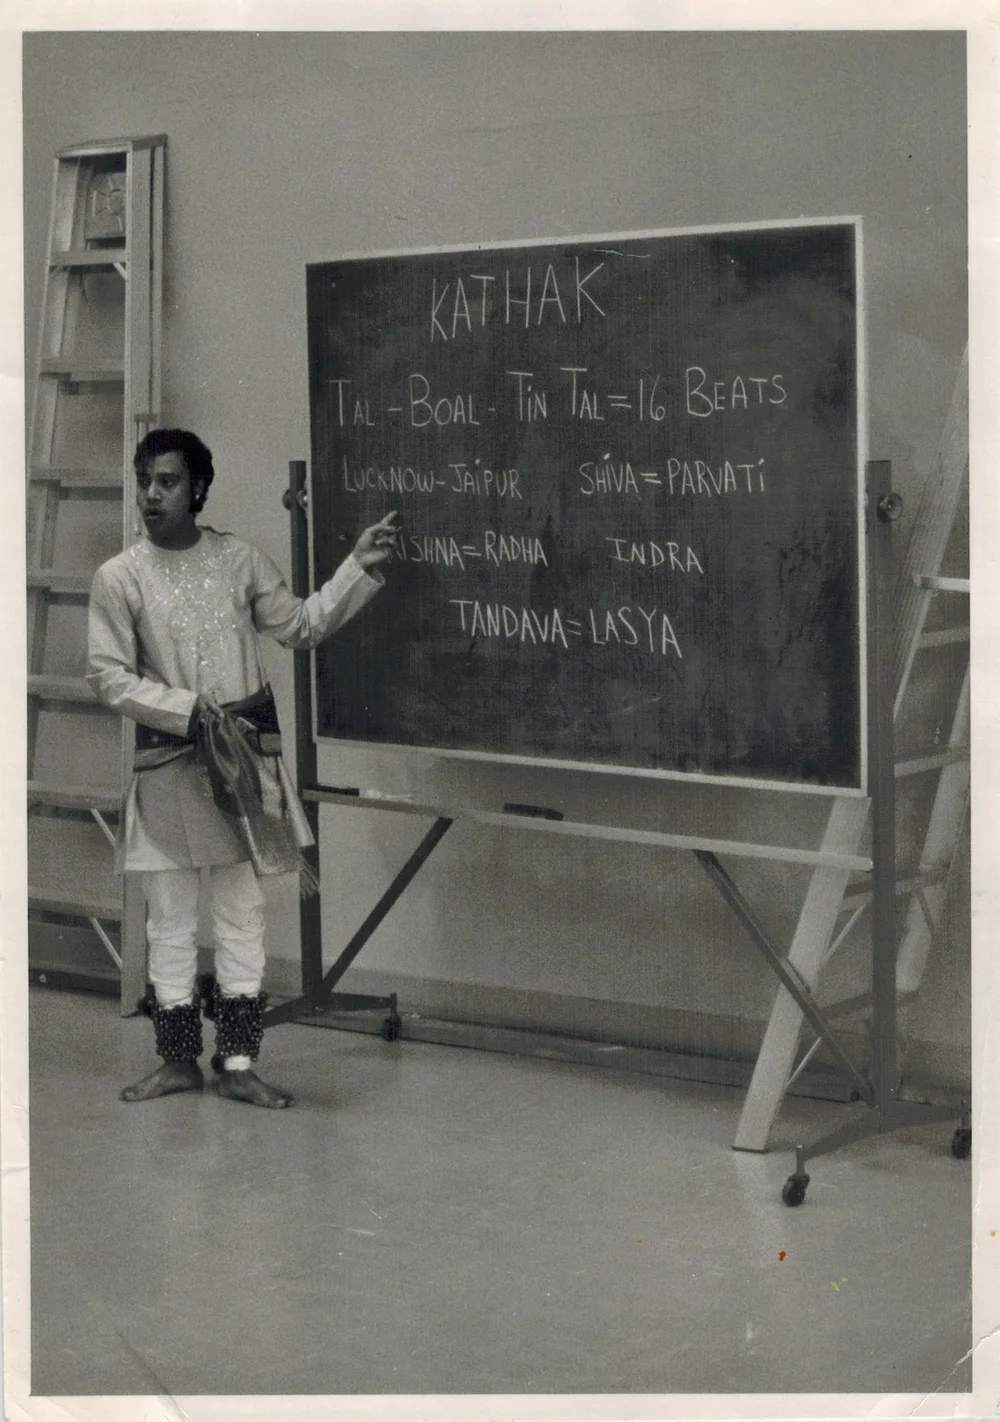 KATHAK
TAL - BOAL - TiN TAL = 16 BEATS
LUCKNOW - JAiPUR SHiVA = PARVATi
RISHNA = RADHA INDRA
TANDAVA = LASYA